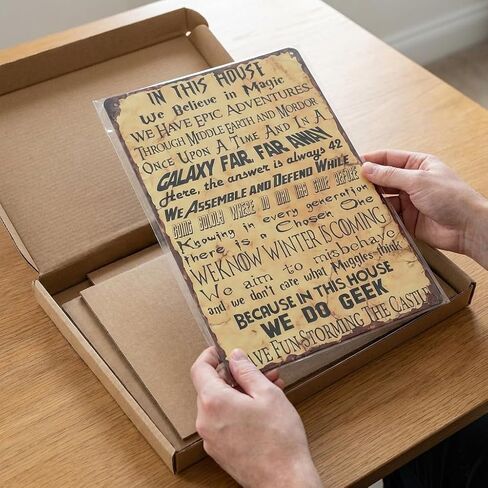 IN THIS HOUSE
We Believe in Magic
WE HAVE EPIC ADVENTURES
THROUGH MIDDLE EARTH AND MORDOR
ONCE UPON A TIME AND IN A
GALAXY FAR, FAR AWAY
Here, the answer is always 42
WE ASSEMBLE AND DEFEND WHILE
GOING BOLDLY WHERE NO MAN HAS GONE BEFORE
Knowing in every generation
there is a Chosen One
WE KNOW WINTER IS COMING
We aim to misbehave
and we don't care what Muggles think
BECAUSE IN THIS HOUSE
WE DO GEEK
AVE FUN STORMING THE CASTL